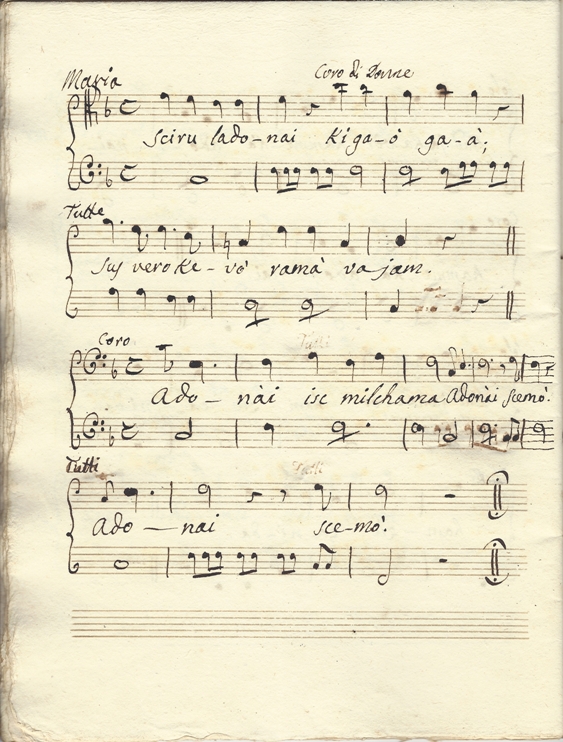 Maria
Coro di Donne
Sciru lado-nai kiga-ò ga-à;
Tutte
Sus veroke-vò ramà va jam.
Coro
Tutti
Ado-nài isc milchama Adonài scemò.
Tutti
Tutti
Ado-nai sce-mò.